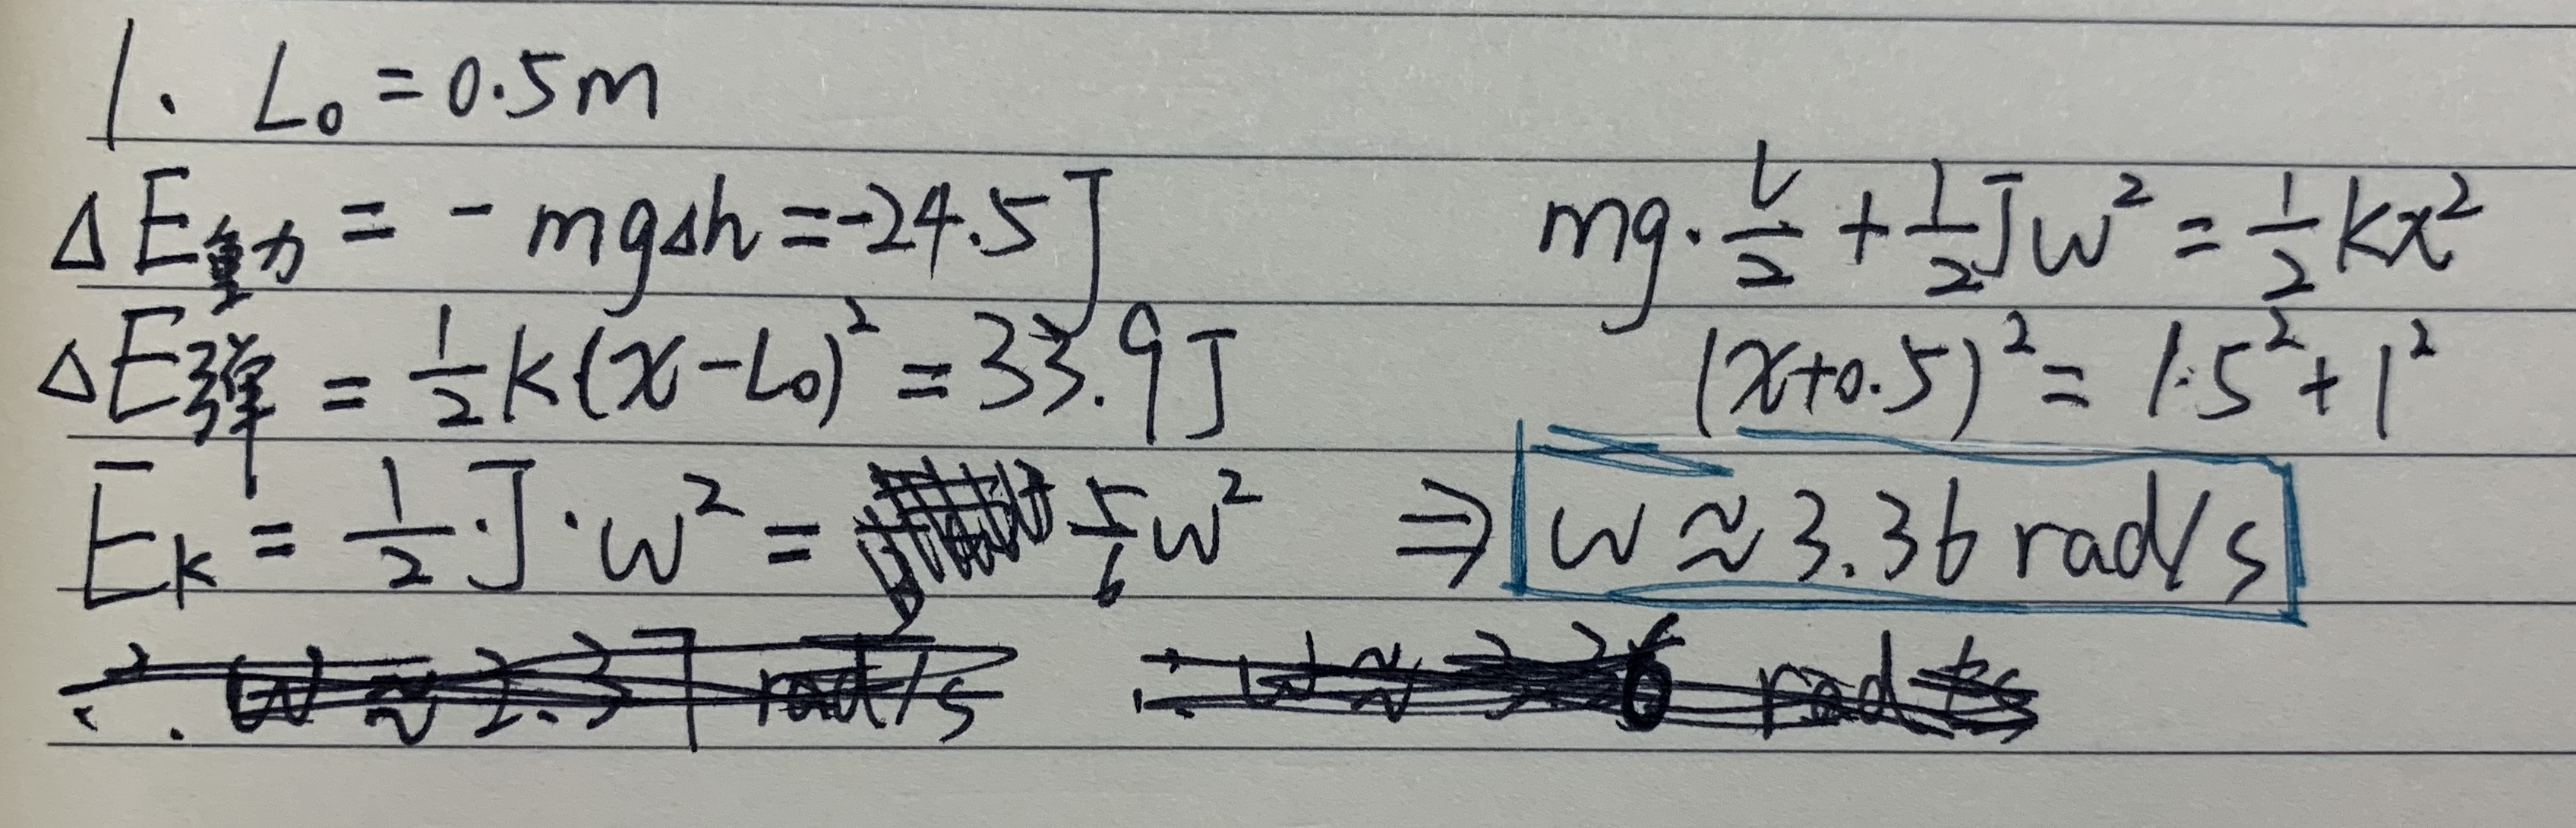 1. L₀ = 0.5m
ΔE重力 = - mgΔh = -24.5J
ΔE弹 = 1/2 k(x-L₀)² = 33.9J
Eₖ = 1/2 · J · w² = 5/6 w²
∴ w ≈ 2.37 rad/s
mg · l/2 + 1/2 Jw² = 1/2 kx²
(x+0.5)² = 1.5² + 1²
⇒ w ≈ 3.36 rad/s
∴ w ≈ rad/s